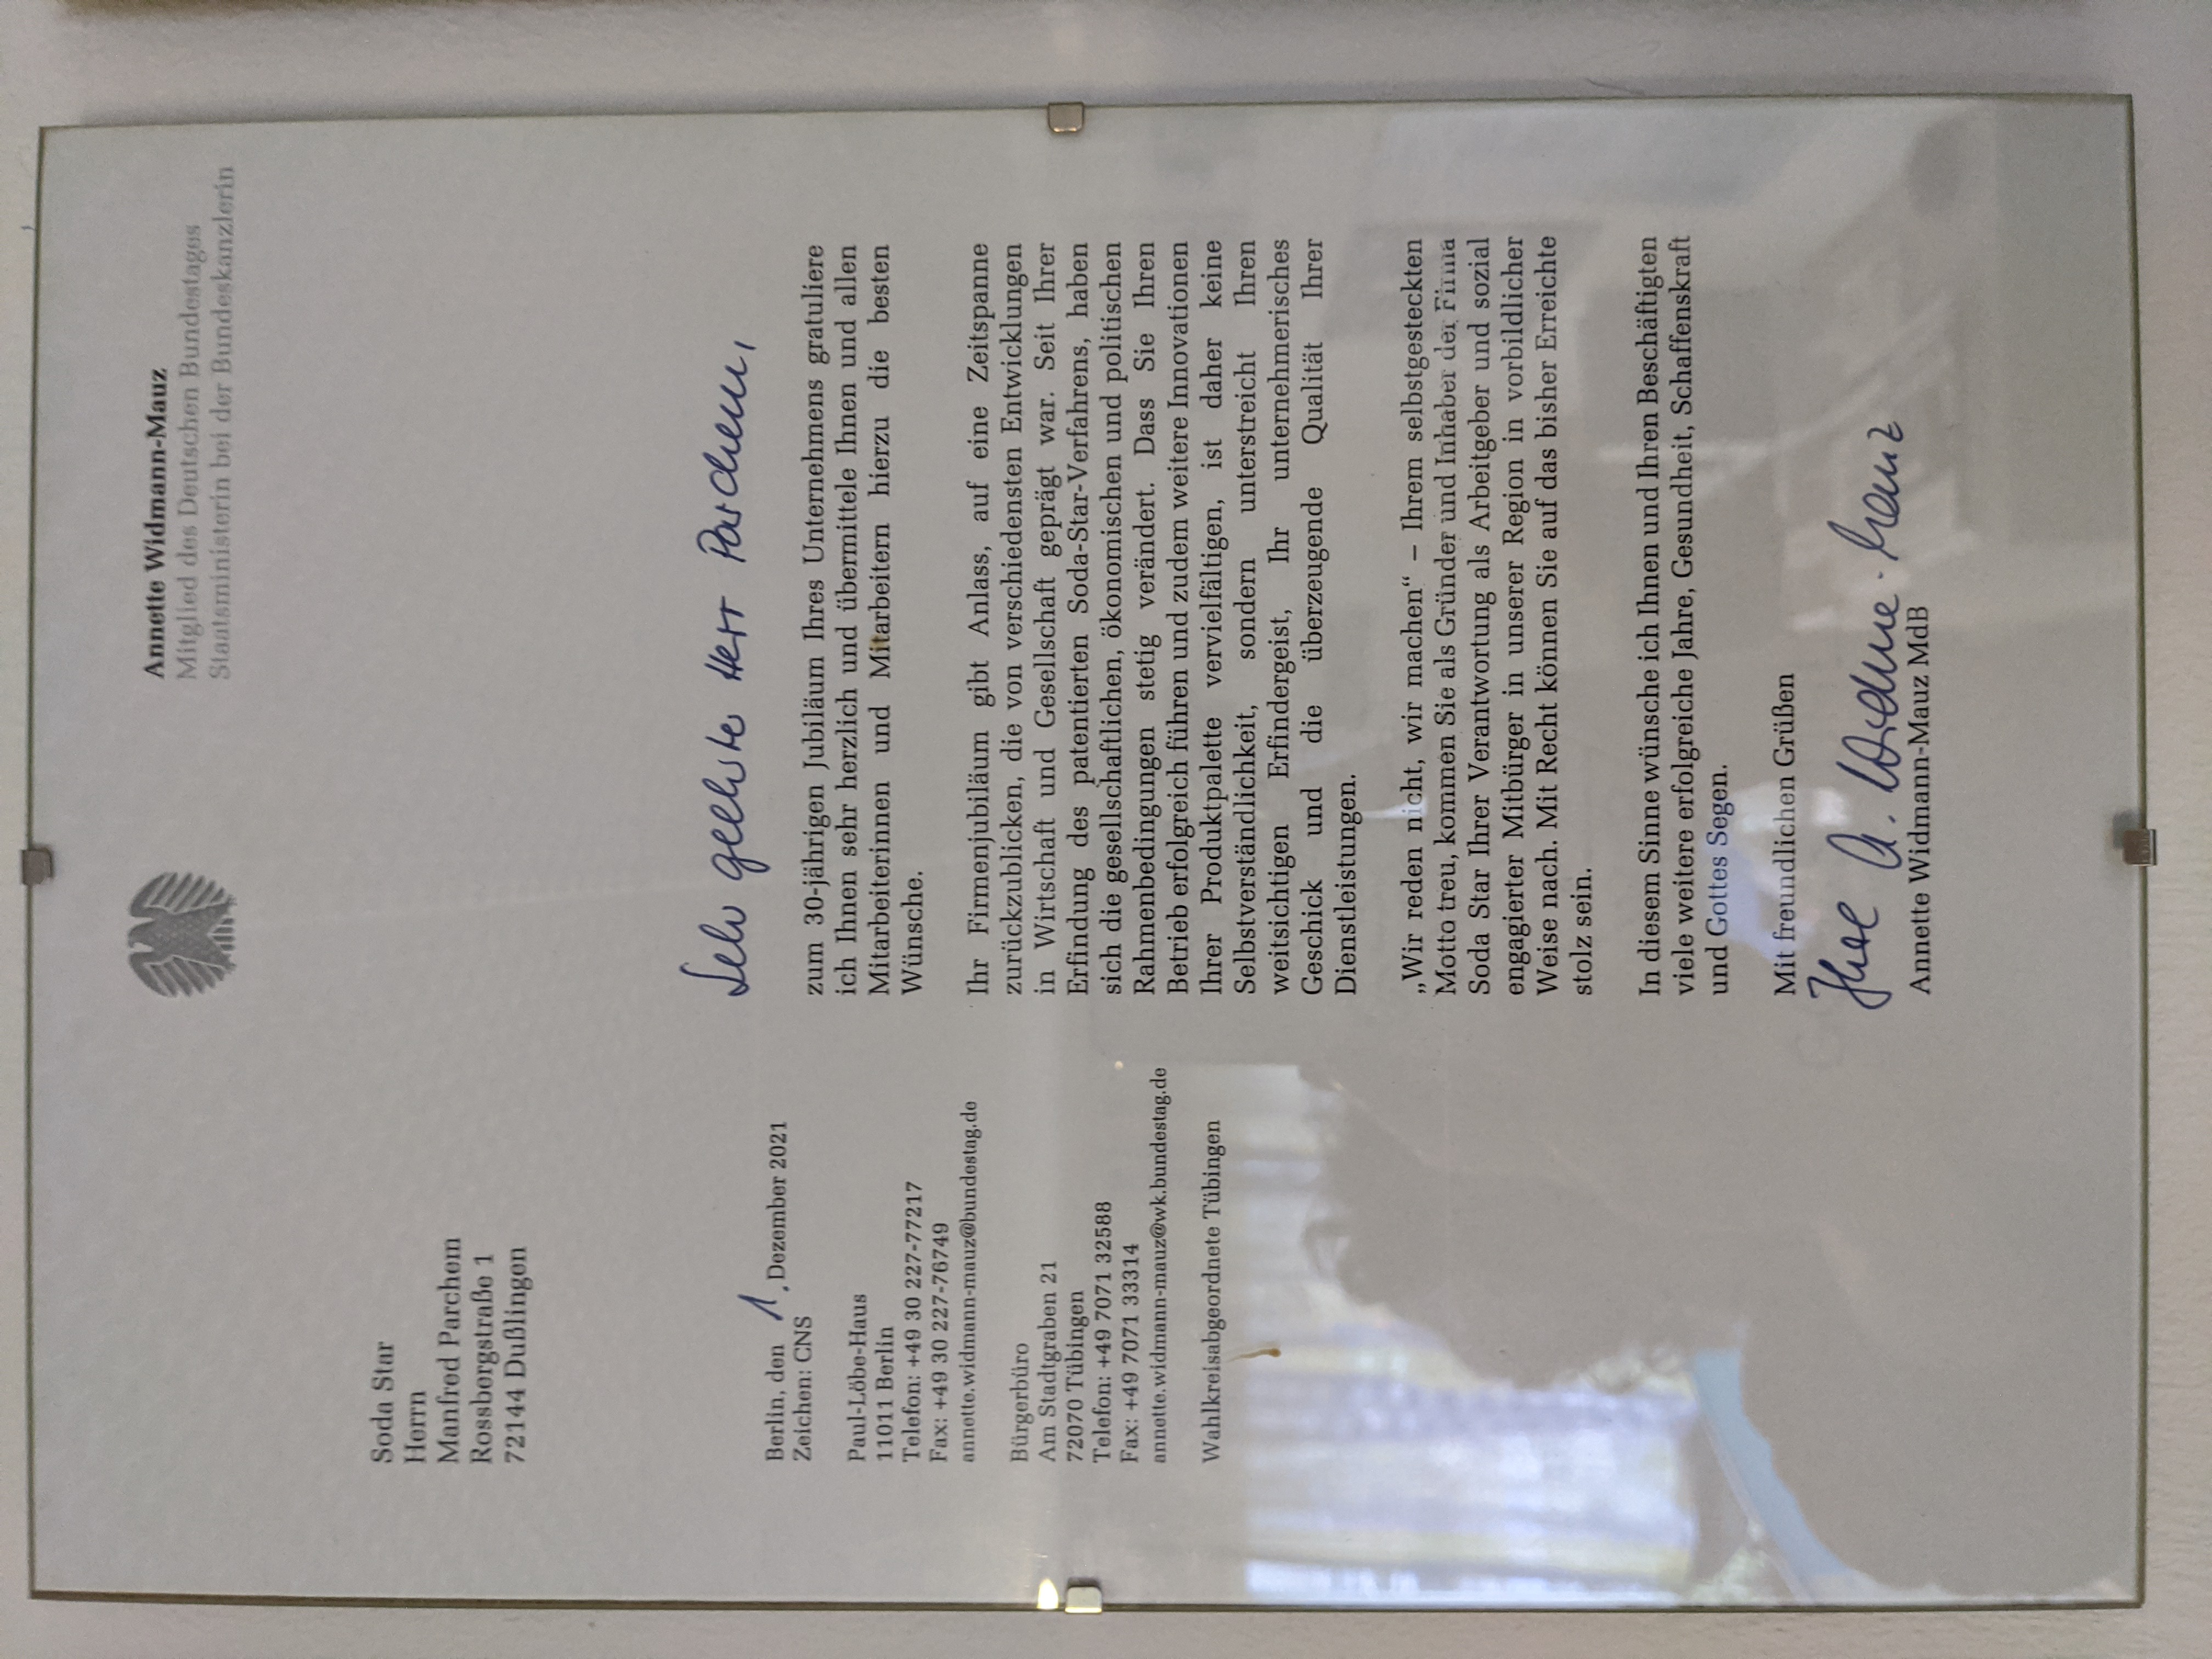 Annette Widmann-Mauz
Mitglied des Deutschen Bundestages
Staatsministerin bei der Bundeskanzlerin
Soda Star
Herrn
Manfred Parchem
Rossbergstraße 1
72144 Dußlingen
Berlin, den 1. Dezember 2021
Zeichen: CNS
Paul-Löbe-Haus
11011 Berlin
Telefon: +49 30 227-77217
Fax: +49 30 227-76749
annette.widmann-mauz@bundestag.de
Bürgerbüro
Am Stadtgraben 21
72070 Tübingen
Telefon: +49 7071 32588
Fax: +49 7071 33314
annette.widmann-mauz@wk.bundestag.de
Wahlkreisabgeordnete Tübingen
Sehr geehrter Herr Parchem,
zum 30-jährigen Jubiläum Ihres Unternehmens gratuliere
ich Ihnen sehr herzlich und übermittele Ihnen und allen
Mitarbeiterinnen und Mitarbeitern hierzu die besten
Wünsche.
Ihr Firmenjubiläum gibt Anlass, auf eine Zeitspanne
zurückzublicken, die von verschiedensten Entwicklungen
in Wirtschaft und Gesellschaft geprägt war. Seit Ihrer
Erfindung des patentierten Soda-Star-Verfahrens, haben
sich die gesellschaftlichen, ökonomischen und politischen
Rahmenbedingungen stetig verändert. Dass Sie Ihren
Betrieb erfolgreich führen und zudem weitere Innovationen
Ihrer Produktpalette vervielfältigen, ist daher keine
Selbstverständlichkeit, sondern unterstreicht Ihren
weitsichtigen Erfindergeist, Ihr unternehmerisches
Geschick und die überzeugende Qualität Ihrer
Dienstleistungen.
„Wir reden nicht, wir machen“ – Ihrem selbstgesteckten
Motto treu, kommen Sie als Gründer und Inhaber der Firma
Soda Star Ihrer Verantwortung als Arbeitgeber und sozial
engagierter Mitbürger in unserer Region in vorbildlicher
Weise nach. Mit Recht können Sie auf das bisher Erreichte
stolz sein.
In diesem Sinne wünsche ich Ihnen und Ihren Beschäftigten
viele weitere erfolgreiche Jahre, Gesundheit, Schaffenskraft
und Gottes Segen.
Mit freundlichen Grüßen
Ihre A. Widmann-Mauz
Annette Widmann-Mauz MdB